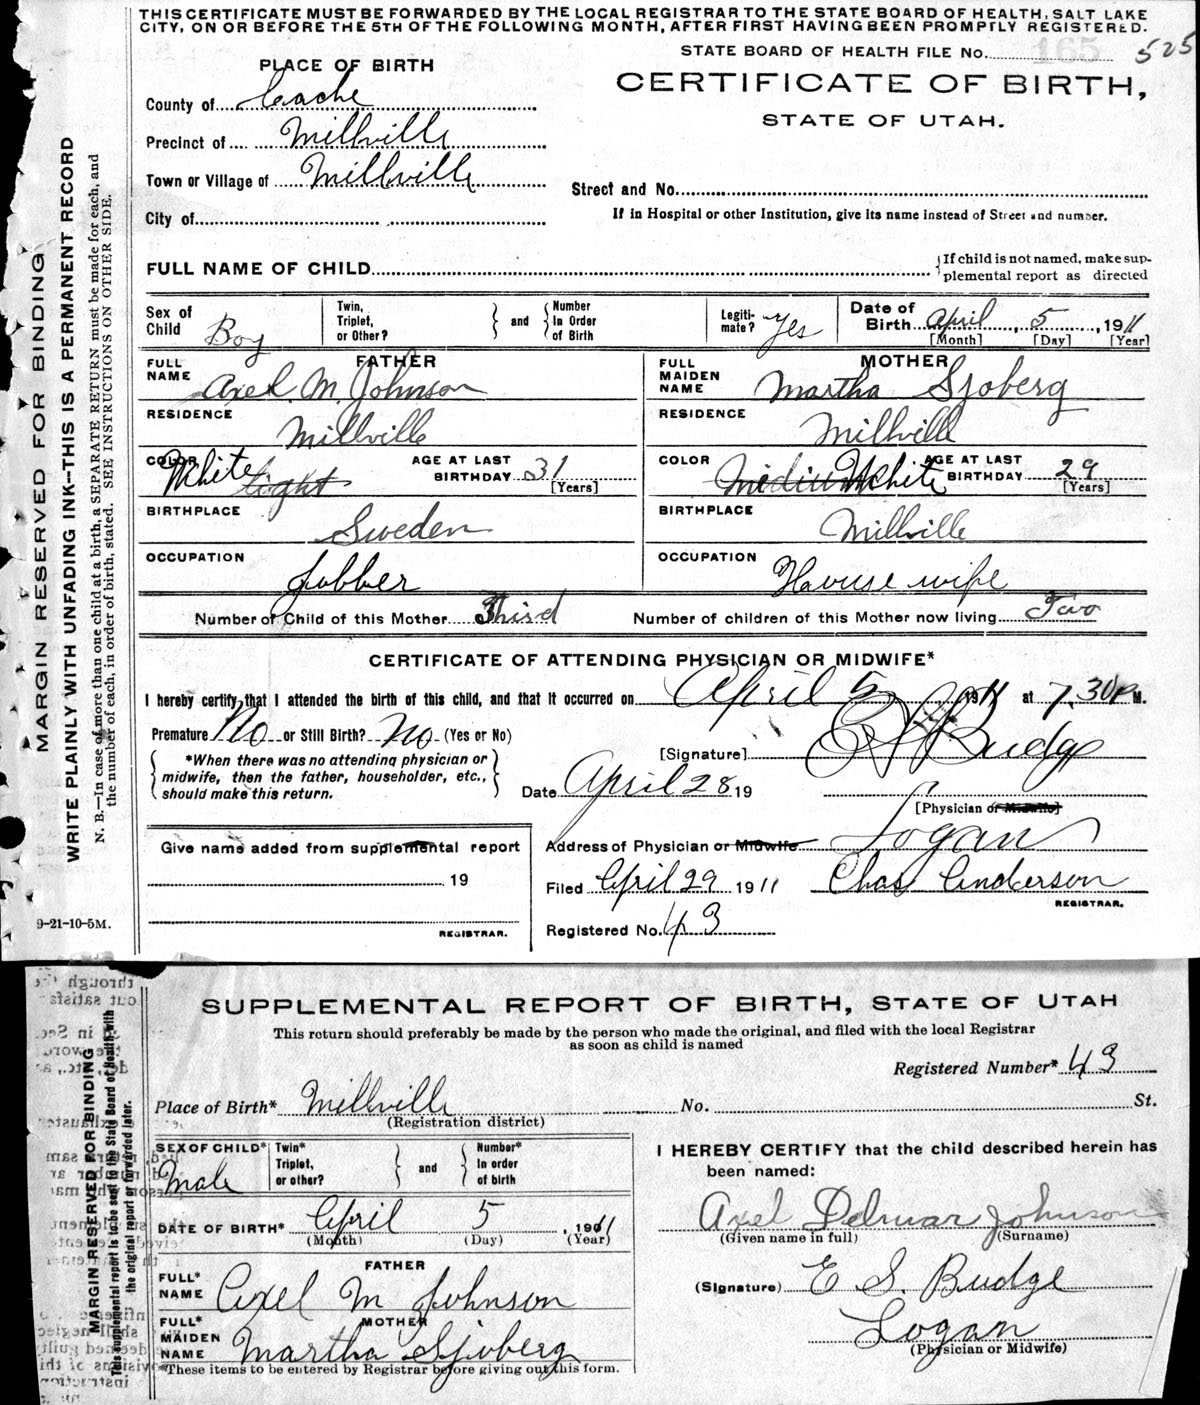 THIS CERTIFICATE MUST BE FORWARDED BY THE LOCAL REGISTRAR TO THE STATE BOARD OF HEALTH, SALT LAKE
CITY, ON OR BEFORE THE 5TH OF THE FOLLOWING MONTH, AFTER FIRST HAVING BEEN PROMPTLY REGISTERED.
STATE BOARD OF HEALTH FILE No. 165 525
PLACE OF BIRTH
CERTIFICATE OF BIRTH,
STATE OF UTAH.
County of Cache
Precinct of Millville
Town or Village of Millville
Street and No.
City of
If in Hospital or other Institution, give its name instead of Street and number.
FULL NAME OF CHILD
If child is not named, make sup-
plemental report as directed
Sex of Child Boy
Twin, Triplet, or Other? and Number In Order of Birth
Legiti-mate? Yes
Date of Birth April 5, 1911
[Month] [Day] [Year]
FATHER
FULL NAME Axel M. Johnson
MOTHER
FULL MAIDEN NAME Martha Sjoberg
RESIDENCE Millville
RESIDENCE Millville
COLOR White Light AGE AT LAST BIRTHDAY 31 [Years]
COLOR Medium White AGE AT LAST BIRTHDAY 29 [Years]
BIRTHPLACE Sweden
BIRTHPLACE Millville
OCCUPATION Jobber
OCCUPATION House wife
Number of Child of this Mother Third
Number of children of this Mother now living Two
CERTIFICATE OF ATTENDING PHYSICIAN OR MIDWIFE*
I hereby certify that I attended the birth of this child, and that it occurred on April 5 1911 at 7.30 P M.
Premature No or Still Birth? No (Yes or No)
[Signature] Budge
*When there was no attending physician or
midwife, then the father, householder, etc.,
should make this return.
Date April 28 19
[Physician or Midwife]
Address of Physician or Midwife Logan
Give name added from supplemental report
19
REGISTRAR.
Filed April 29 1911 Chas Anderson
REGISTRAR.
Registered No. 43
9-21-10-5M.
MARGIN RESERVED FOR BINDING
WRITE PLAINLY WITH UNFADING INK—THIS IS A PERMANENT RECORD
N. B.—In case of more than one child at a birth, a SEPARATE RETURN must be made for each, and
the number of each, in order of birth, stated. SEE INSTRUCTIONS ON OTHER SIDE.
SUPPLEMENTAL REPORT OF BIRTH, STATE OF UTAH
This return should preferably be made by the person who made the original, and filed with the local Registrar
as soon as child is named
Registered Number* 43
Place of Birth* Millville No. St.
(Registration district)
SEX OF CHILD* Male
Twin* Triplet, or other? and Number* In order of birth
I HEREBY CERTIFY that the child described herein has
been named:
DATE OF BIRTH* April 5, 1911
(Month) (Day) (Year)
Axel Delmar Johnson
(Given name in full) (Surname)
FATHER
FULL* NAME Axel M Johnson
(Signature) E S. Budge
MOTHER
FULL* MAIDEN NAME Martha Sjoberg
Logan
(Physician or Midwife)
*These items to be entered by Registrar before giving out this form.
MARGIN RESERVED FOR BINDING
This supplemental report is to be sent to the State Board of Health with
the original report or forwarded later.